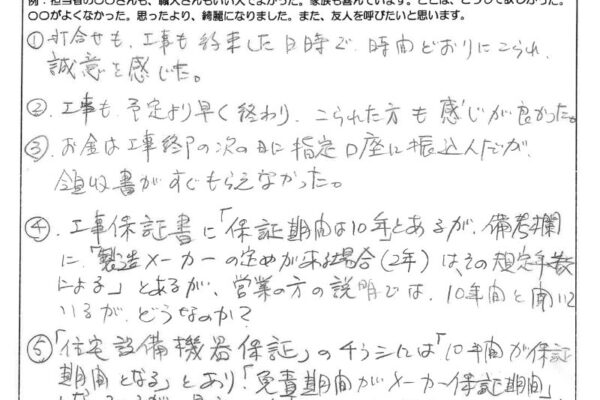 例：担当者の〇〇さんも、職人さんもいい人でよかった。家族も喜んでいます。ここは、こうしてほしかった。
〇〇がよくなかった。思ったより、綺麗になりました。また、友人を呼びたいと思います。
①打合せも、工事も約束した日時で、時間どおりにこられ、
誠意を感じた。
②工事も予定より早く終わり、こられた方も感じが良かった。
③お金は工事終了の次の日に指定口座に振込んだが、
領収書がすぐもらえなかった。
④工事保証書に「保証期間は10年」とあるが、備考欄
に、「製造メーカーの定めが来る場合(2年)は、その規定年数
による」とあるが、営業の方の説明では、10年間と聞いて
いるが、どうなのか？
⑤「住宅設備機器保証」のチラシには「10年間が保証
期間となる」とあり「免責期間がメーカー保証期間」